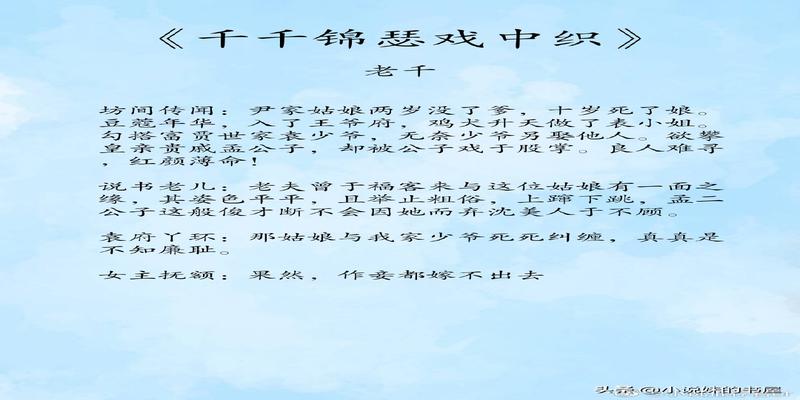 《千千锦瑟戏中织》
老千
坊间传闻：尹家姑娘两岁没了爹，十岁死了娘。
豆蔻年华，入了王爷府，鸡犬升天做了表小姐。
勾搭富贾世家袁少爷，无奈少爷另娶他人。欲攀
皇亲贵戚孟公子，却被公子戏于股掌。良人难寻
，红颜薄命！
说书老儿：老夫曾于福客来与这位姑娘有一面之
缘，其姿色平平，且举止粗俗，上蹿下跳，孟二
公子这般俊才断不会因她而弃沈美人于不顾。
袁府丫环：那姑娘与我家少爷死死纠缠，真真是
不知廉耻。
女主抚额：果然，作妾都嫁不出去
头条@小说妹的书屋